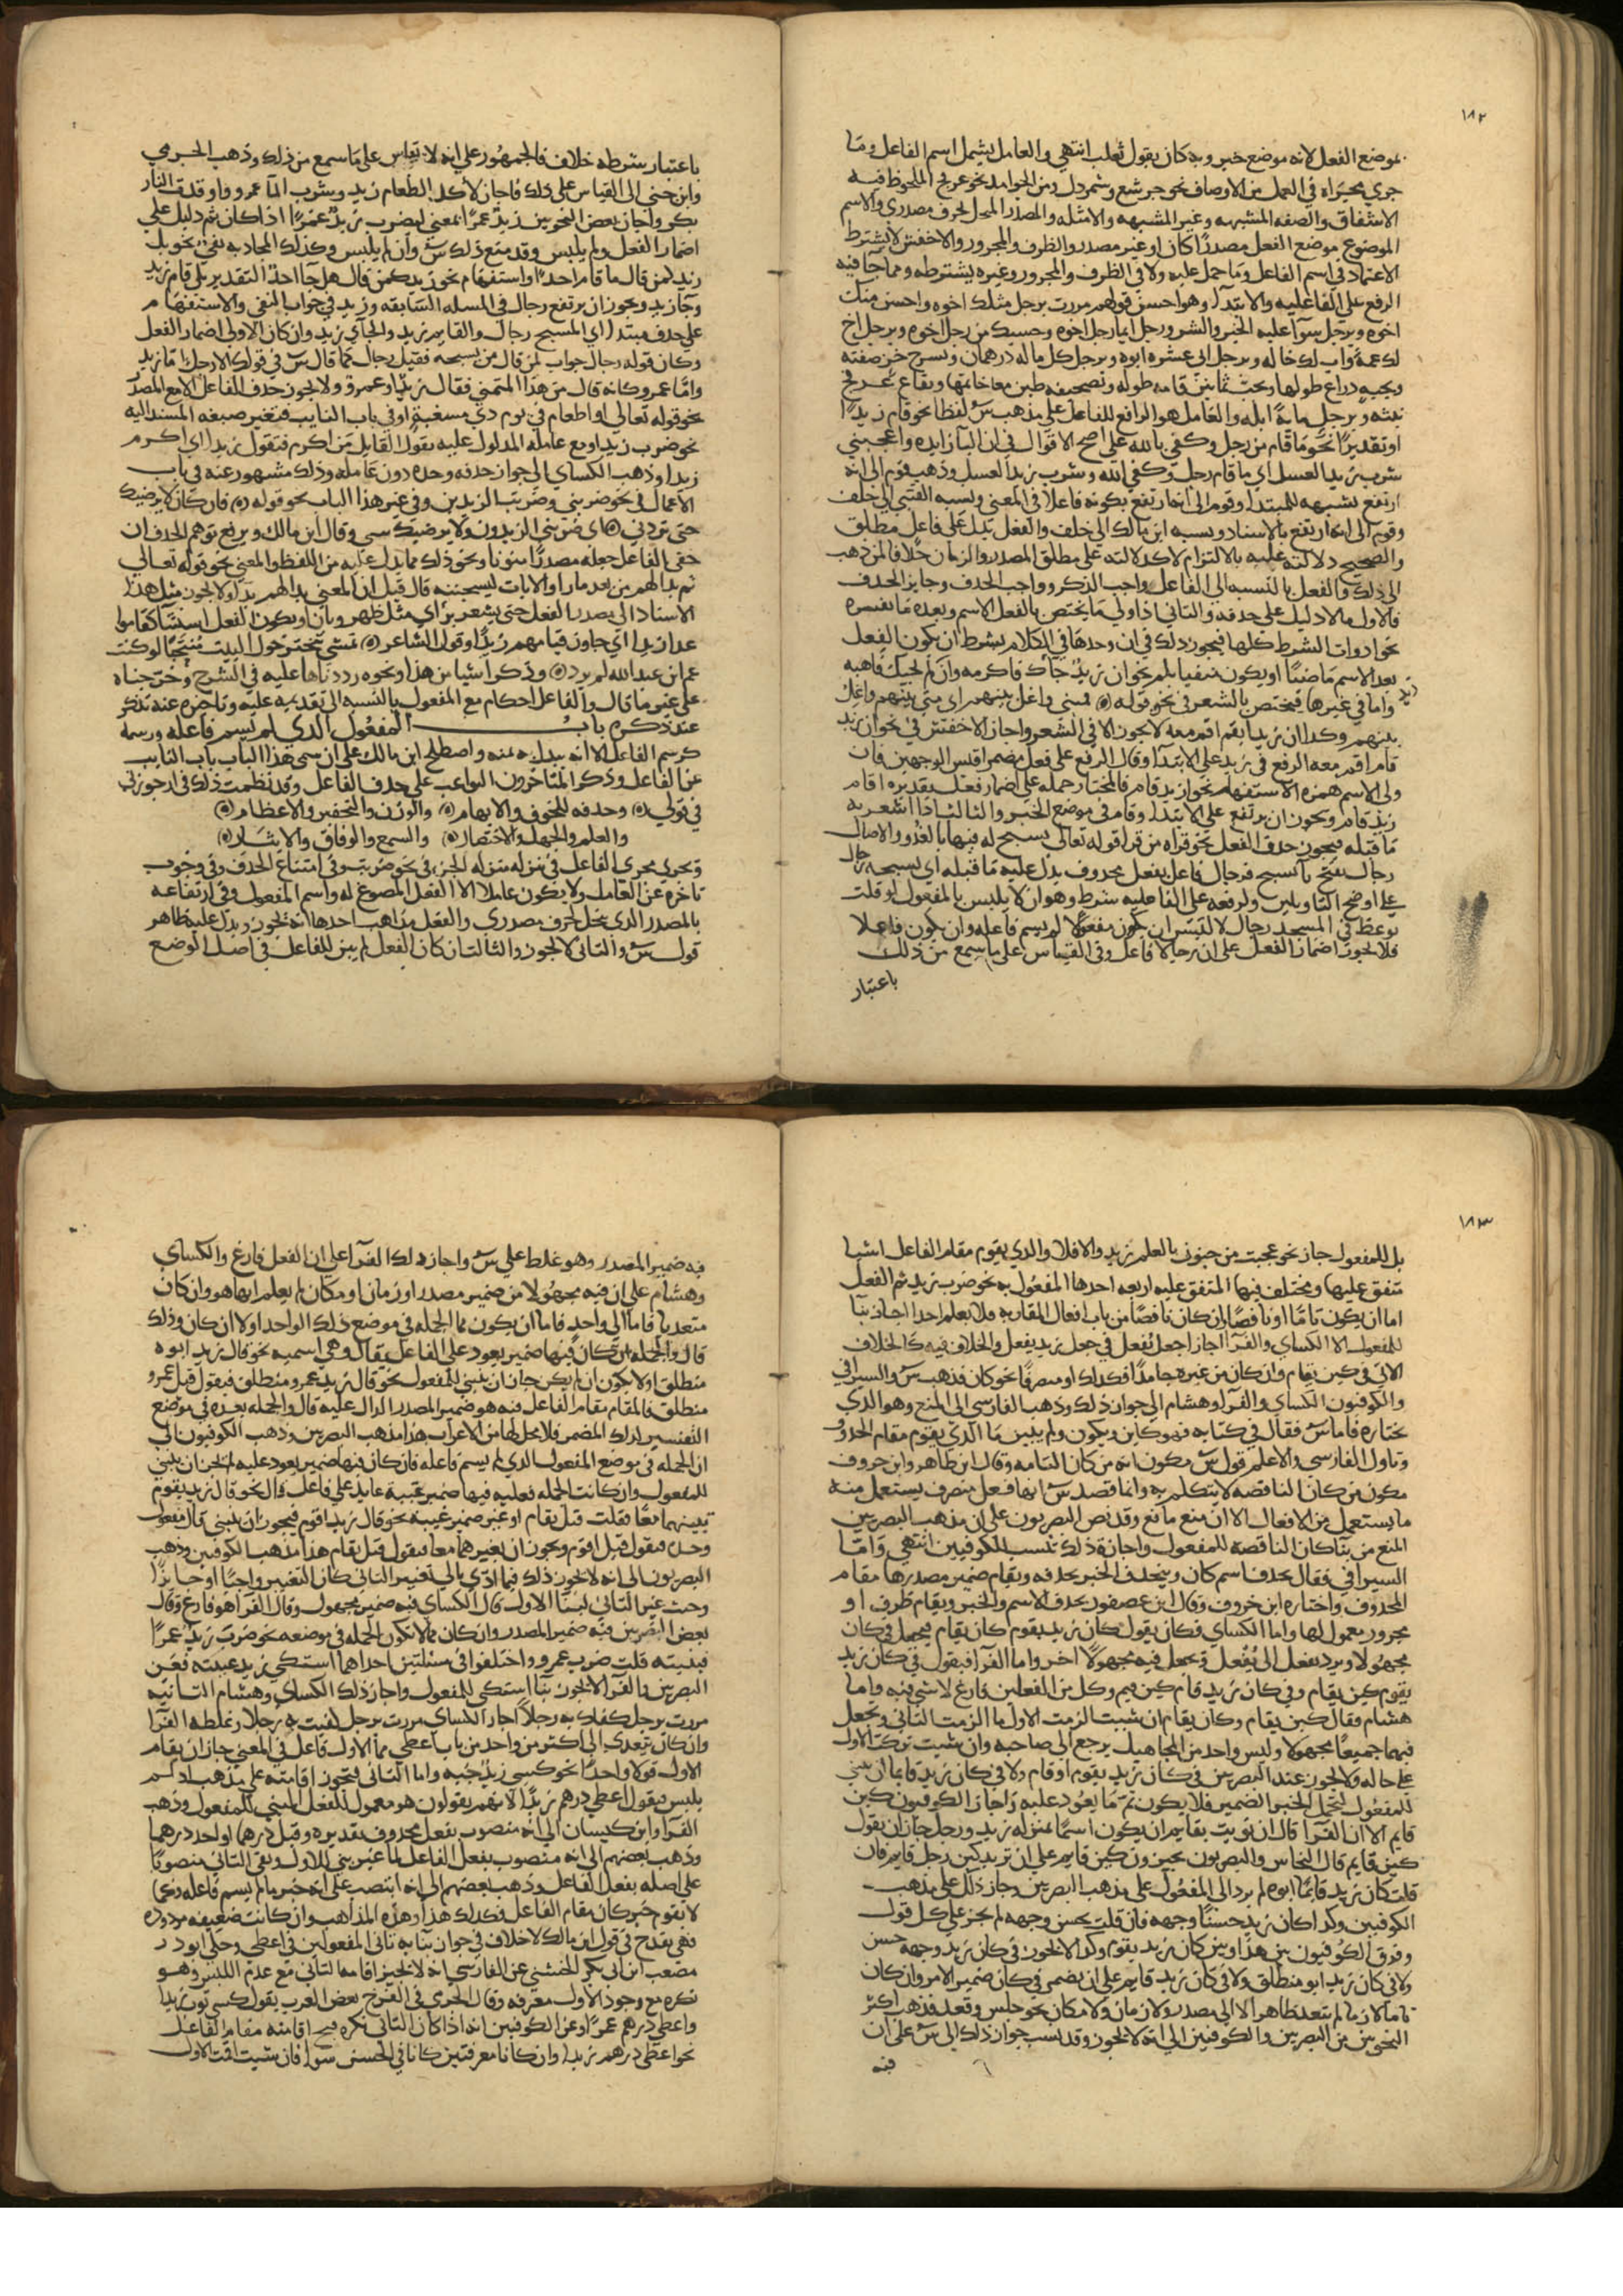 ١٨٢
موضع الفعل لانه موضع خبر وبه كان يقول ثعلب انتهي والعامل يشمل اسم الفاعل وما
جري مجراه في العمل من الاوصاف نحو جرشع وشمردل ومن الجوامد نحو عرفج الملحوظ فيه
الاشتقاق والصفه المشبهه وغير المشبهه والامثله والمصدر المنحل لحرف مصدري والاسم
الموضوع موضع الفعل مصدرا كان او غير مصدر والظرف والمجرور والاخفش لا يشترط
الاعتماد في اسم الفاعل وما حمل عليه ولا في الظرف والمجرور وغيره يشترطه ومما جا فيه
الرفع علي الفاعليه والابتدا وهو احسن قولهم مررت برجل مثلك اخوه واحسن منك
اخوه وبرجل سوآ عليه الخير والشر وبرجل ايما رجل اخوه وحسبك من رجل اخوه وبرجل اخ
لك عمه واب لك خاله وبرجل ابي عشره ابوه وبرجل كل ماله درهمان وبسرج خز صفته
وبحيه ذراع طولها وتحت ثمانين قامه طوله وبصحيفه طين معا خاتمها وبقاع عرفج
نبته وبرجل مايه ابله والعامل هو الرافع للفاعل علي مذهب س لفظا نحو قام زيد
او تقديرا نحو ما قام من رجل وكفي بالله علي اصح الاقوال في ان البا زايده واعجبني
شرب زيد العسل اي ما قام رجل وكفي الله وشرب زيد العسل وذهب قوم الي انه
ارتفع بشبهه للمبتدا وقوم الي انه ارتفع بكونه فاعلا في المعني ونسبه القتبي الي خلف
وقوم الي انه ارتفع بالاسناد ونسبه ابن مالك الي خلف والفعل يدل علي فاعل مطلق
والصحيح دلالته عليه بالالتزام لا كدلالته علي مطلق المصدر والزمان خلافا لمن ذهب
الي ذلك والفعل بالنسبه الي الفاعل واجب الذكر وواجب الحذف وجايز الحذف
فالاول ما لا دليل علي حذفه والثاني اذا ولي ما يختص بالفعل الاسم وبعده ما يفسره
نحو ادوات الشرط كلها فيجوز ذلك في ان وحدها في الكلام بشرط ان يكون الفعل
بعد الاسم ماضيا او يكون منفيا بلم نحو ان زيد جاك فاكرمه وان لم يجيك فاهنه
واما في غيرها فيختص بالشعر في نحو قوله فمتي واغل ينبهم اي متي ينبهم واغل
ينبهم وكذا ان زيد يقم اقم معه لا يجوز الا في الشعر واجاز الاخفش في نحو ان زيد
قام اقم معه الرفع في زيد علي الابتدا وقال الرفع علي فعل مضمر اقيس الوجهين فان
ولي الاسم همزه الاستفهام نحو ازيد قام فالمختار حمله علي اضمار فعل تقديره اقام
زيد قام ويجوز ان يرتفع علي الابتدا وقام في موضع الخبر والثالث اذا اشعر به
ما قبله فيجوز حذف الفعل نحو قراه من قرا قوله تعالي يسبح له فيها بالغدو والاصال
رجال بفتح با يسبح فرجال فاعل بفعل محذوف يدل عليه ما قبله اي يسبحه رجال
علي اوضح التاويلين ولرفعه علي الفاعليه شرط وهو ان لا يلبس بالمفعول لو قلت
يوعظ في المسجد رجال لالتبس ان يكون مفعولا لم يسم فاعله وان يكون فاعلا
فلا يجوز اضمار الفعل علي ان رجالا فاعل وفي القياس علي ما سمع من ذلك
باعتبار
باعتبار شرطه خلاف فالجمهور علي انه لا يقاس علي ما سمع من ذلك وذهب الجرمي
وابن جني الي القياس علي ذلك فاجاز لا كل الطعام زيد وشرب الما عمرو واوقدت النار
بكر واجاز بعض النحويين زيد عمرا بمعني ليضرب زيد عمرا اذا كان ثم دليل علي
اضمار الفعل ولم يلبس وقد منع ذلك س وان لم يلبس وكذلك المجاب به نفي نحو بل
زيد لمن قال ما قام احد او استفهام نحو زيد لمن قال هل جا احد التقدير بلي قام زيد
وجا زيد ويجوز ان يرتفع رجال في المسله السابقه وزيد في جواب النفي والاستفهام
علي حذف مبتدا اي المسبح رجال والقايم زيد والجاي زيد وان كان الاولي اضمار الفعل
وكان قوله رجال جواب لمن قال من يسبحه فقيل رجال كما قال س في قولك الا رجل اما زيد
واما عمرو كانه قال من هذا المتمني فقال زيد او عمرو ولا يجوز حذف الفاعل الا مع المصدر
نحو قوله تعالي او اطعام في يوم ذي مسغبه او في باب النايب فتغير صيغه المسند اليه
نحو ضرب زيد او مع عامله المدلول عليه بقول القايل من اكرم فتقول زيدا اي اكرم
زيدا وذهب الكساي الي جواز حذفه وحده دون عامله وذلك مشهور عنه في باب
الاعمال في نحو ضربني وضربت الزيدين وفي غير هذا الباب نحو قوله فان كان لا يرضيك
حتي تردني اي ضربني الزيدون ولا يرضيك شي وقال ابن مالك ويرفع توهم الحذف ان
خفي الفاعل جعله مصدرا منويا ونحو ذلك مما يدل عليه من اللفظ والمعني نحو قوله تعالي
ثم بدا لهم من بعد ما راوا الايات ليسجننه قال قبل ان المعني بدا لهم بدا ولا يجوز مثل هذا
الاسناد الي مصدر الفعل حتي يشعر براي مثل ظهر وبان او يكون الفعل استثنا كقاموا
عدا زيدا اي جاوز قيامهم زيدا وقول الشاعر تمشي تبختر حول البيت منتحيا لو كنت
عمرو ابن عبد الله لم يزد وذكر اشيا من هذا ونحوه رددناها عليه في الشرح وخرجناه
علي غير ما قال وللفاعل احكام مع المفعول بالنسبه الي تقديمه عليه وتاخره عنه تذكر
عند ذكره باب المفعول الذي لم يسم فاعله ورسمه
كرسم الفاعل الا انه يبدل به منه واصطلح ابن مالك علي ان سمي هذا الباب باب النايب
عن الفاعل وذكر المتاخرون البواعث علي حذف الفاعل وقد نظمت ذلك في ارجوزتي
في قولي وحذفه للخوف والابهام والوزن والتحقير والاعظام
والعلم والجهل والاختصار والسمع والوفاق والايثار
ويجري مجري الفاعل في تنزله منزله الجزء في نحو ضربت وفي امتناع الحذف وفي وجوب
تاخره عن العامل ولا يكون عاملا الا الفعل المصوغ له واسم المفعول وفي ارتفاعه
بالمصدر الذي ينحل لحرف مصدري والفعل مذاهب احدها انه يجوز ويدل عليه ظاهر
قول س والثاني لا يجوز والثالث ان كان الفعل لم يبن للفاعل في اصل الوضع
١٨٣
بل للمفعول جاز نحو عجبت من جنون بالعلم زيد والا فلا والذي يقوم مقام الفاعل اشيا
متفق عليها ومختلف فيها المتفق عليه اربعه احدها المفعول به نحو ضرب زيد ثم الفعل
اما ان يكون تاما او ناقصا ان كان ناقصا من باب افعال المقاربه فلا نعلم احدا اجاز بنا
للمفعول الا الكساي والفرا اجازا جعل يفعل في جعل زيد يفعل والخلاف فيه كالخلاف
الاتي في كين يقام وان كان من غيره جامدا فكذلك او متصرفا نحو كان فذهب س والسيرافي
والكوفيون الكساي والفرا وهشام الي جواز ذلك وذهب الفارسي الي المنع وهو الذي
نختاره فاما س فقال في كتابه فهو كاين ويكون ولم يبين ما الذي يقوم مقام المحذوف
وتاول الفارسي والاعلم قول س مكون انه من كان التامه وقال ابن طاهر وابن خروف
مكون من كان الناقصه لا يتكلم به وانما قصد س انها فعل متصرف يستعمل منه
ما يستعمل من الافعال الا ان منع مانع وقد نص البصريون علي ان مذهب البصريين
المنع من بنا كان الناقصه للمفعول واجازه ذلك تنسب للكوفيين انتهي واما
السيرافي فقال بحذف اسم كان وينحذف الخبر بحذفه ويقام ضمير مصدرها مقام
المحذوف واختاره ابن خروف وقال ابن عصفور بحذف الاسم والخبر ويقام ظرف او
مجرور معمول لها واما الكساي فكان يقول كان زيد يقوم كان يقام فيجعل في كان
مجهولا ويرد يفعل الي يُفعل ويجعل فيه مجهولا اخر واما الفرا فيقول في كان زيد
يقوم كين يقام وفي كان زيد قام كين قيم وكل من الفعلين فارغ لا شي فيه واما
هشام فقال كين يقام وكان يقام ان شيت الزمت الاول ما الزمت الثاني وتجعل
فيهما جميعا مجهولا وليس واحد من المجاهيل يرجع الي صاحبه وان شيت تركت الاول
علي حاله ولا يجوز عند البصريين في كان زيد يقوم او قام ولا في كان زيد قايما ان يبني
للمفعول لتحمل الخبر الضمير فلا يكون ثم ما يعود عليه واجاز الكوفيون كين
قايم الا ان الفرا قال ان نويت بقايم ان يكون اسما بمنزله زيد ورجل جاز ان يقول
كين قايم قال النحاس والبصريون يجيزون كين قايم علي ان تريد كين رجل قايم فان
قلت كان زيد قايما ابوه لم يرد الي المفعول علي مذهب البصريين وجاز ذلك علي مذهب
الكوفيين وكذا كان زيد حسنا وجهه فان قلت يحسن وجهه لم يجز علي كل قول
وفرق الكوفيون بين هذا وبين كان زيد يقوم وكذا لا يجوز في كان زيد وجهه حسن
ولا في كان زيد ابوه منطلق ولا في كان زيد قايم علي ان يضمر في كان ضمير الامر وان كان
تاما لازما لم يتعد ظاهرا لا الي مصدر ولا زمان ولا مكان نحو جلس وقعد فذهب اكثر
النحويين من البصريين والكوفيين الي انه لا يجوز وقد نسب جواز ذلك الي س علي ان
فيه
فيه ضمير المصدر وهو غلط علي س واجاز ذلك الفرا علي ان الفعل فارغ والكساي
وهشام علي ان فيه مجهولا من ضمير مصدر او زمان او مكان لم يعلم ايها هو وان كان
متعديا فاما الي واحد فاما ان يكون مما الجمله في موضع ذلك الواحد او لا ان كان وذلك
قال والجمله ان كان فيها ضمير يعود علي الفاعل بقال وهي اسميه نحو قال زيد ابوه
منطلق او لا يكون ان لم يكن جاز ان يبني للمفعول نحو قال زيد عمرو منطلق فيقول قيل عمرو
منطلق فالمقام مقام الفاعل فيه هو ضمير المصدر الدال عليه قال والجمله بعده في موضع
التفسير لذلك المضمر فلا محل لها من الاعراب هذا مذهب البصريين وذهب الكوفيون الي
ان الجمله في موضع المفعول الذي لم يسم فاعله فان كان فيها ضمير يعود عليه لم يجز ان يبني
للمفعول وان كانت الجمله فعليه فيها ضمير غيبه عايد علي فاعل قال نحو قال زيد يقوم
بنيتهما معا فقلت قيل يقام او غير ضمير غيبه نحو قال زيد اقوم فيجوز ان يبني قال مفعول
وحده فيقول قيل اقوم ويجوز ان يغيرهما معا فيقول قيل يقام هذا مذهب الكوفيين وذهب
البصريون الي انه لا يجوز ذلك فيما ادي بالي تغيير الثاني كان التغيير واجبا او جايزا
وحيث غير الثاني لبنا الاول قال الكساي فيه ضمير مجهول وقال الفرا هو فارغ وقال
بعض البصريين فيه ضمير المصدر وان كان مما لا تكون الجمله في موضعه نحو ضرب زيد عمرا
فبنيته قلت ضرب عمرو واختلفوا في مسئلتين احداهما اشتكي زيد عينه فعن
البصريين والفرا لا يجوز بنا اشتكي للمفعول واجاز ذلك الكساي وهشام الثانيه
مررت برجل كفاك به رجلا اجاز الكساي مررت برجل كفيت به رجلا وغلطه الفرا
وان كان يتعدي الي اكثر من واحد من باب اعطي مما الاول فاعل في المعني جاز ان يقام
الاول قولا واحدا نحو كسي زيد جبه واما الثاني فيجوز اقامته علي مذهب اذا لم
يلبس فيقول اعطي درهم زيدا لانهم يقولون هو معمول للفعل المبني للمفعول وذهب
الفرا وابن كيسان الي انه منصوب بفعل محذوف تقديره وقبل درهما او اخذ درهما
وذهب بعضهم الي انه منصوب بفعل الفاعل لما غير بني للاول وبقي الثاني منصوبا
علي اصله بفعل الفاعل وذهب بعضهم الي انه انتصب علي انه خبر ما لم يسم فاعله وكما
لا يقوم خبر كان مقام الفاعل فكذلك هذا وهذه المذاهب وان كانت ضعيفه مردوده
فهي تقدح في قول ابن مالك لا خلاف في جواز نيابه ثاني المفعولين في اعطي وحكي ابو ذر
مصعب ابن ابي بكر الخشني عن الفارسي انه لا يجيز اقامه الثاني مع عدم اللبس وهو
نكره مع وجود الاول معرفه وقال الجرمي في الفرخ بعض العرب يقول كسي ثوب زيدا
واعطي درهم عمرا وعن الكوفيين انه اذا كان الثاني نكره قبح اقامته مقام الفاعل
نحو اعطي درهم زيدا وان كانا معرفتين كانا في الحسن سوا فان شيت اقمت الاول